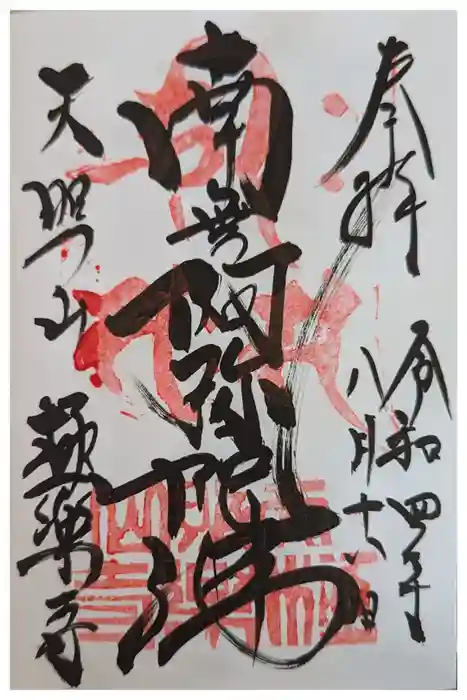 奉拝
令和四年
八月十八日
南無阿弥陀佛
天照山
樂寺